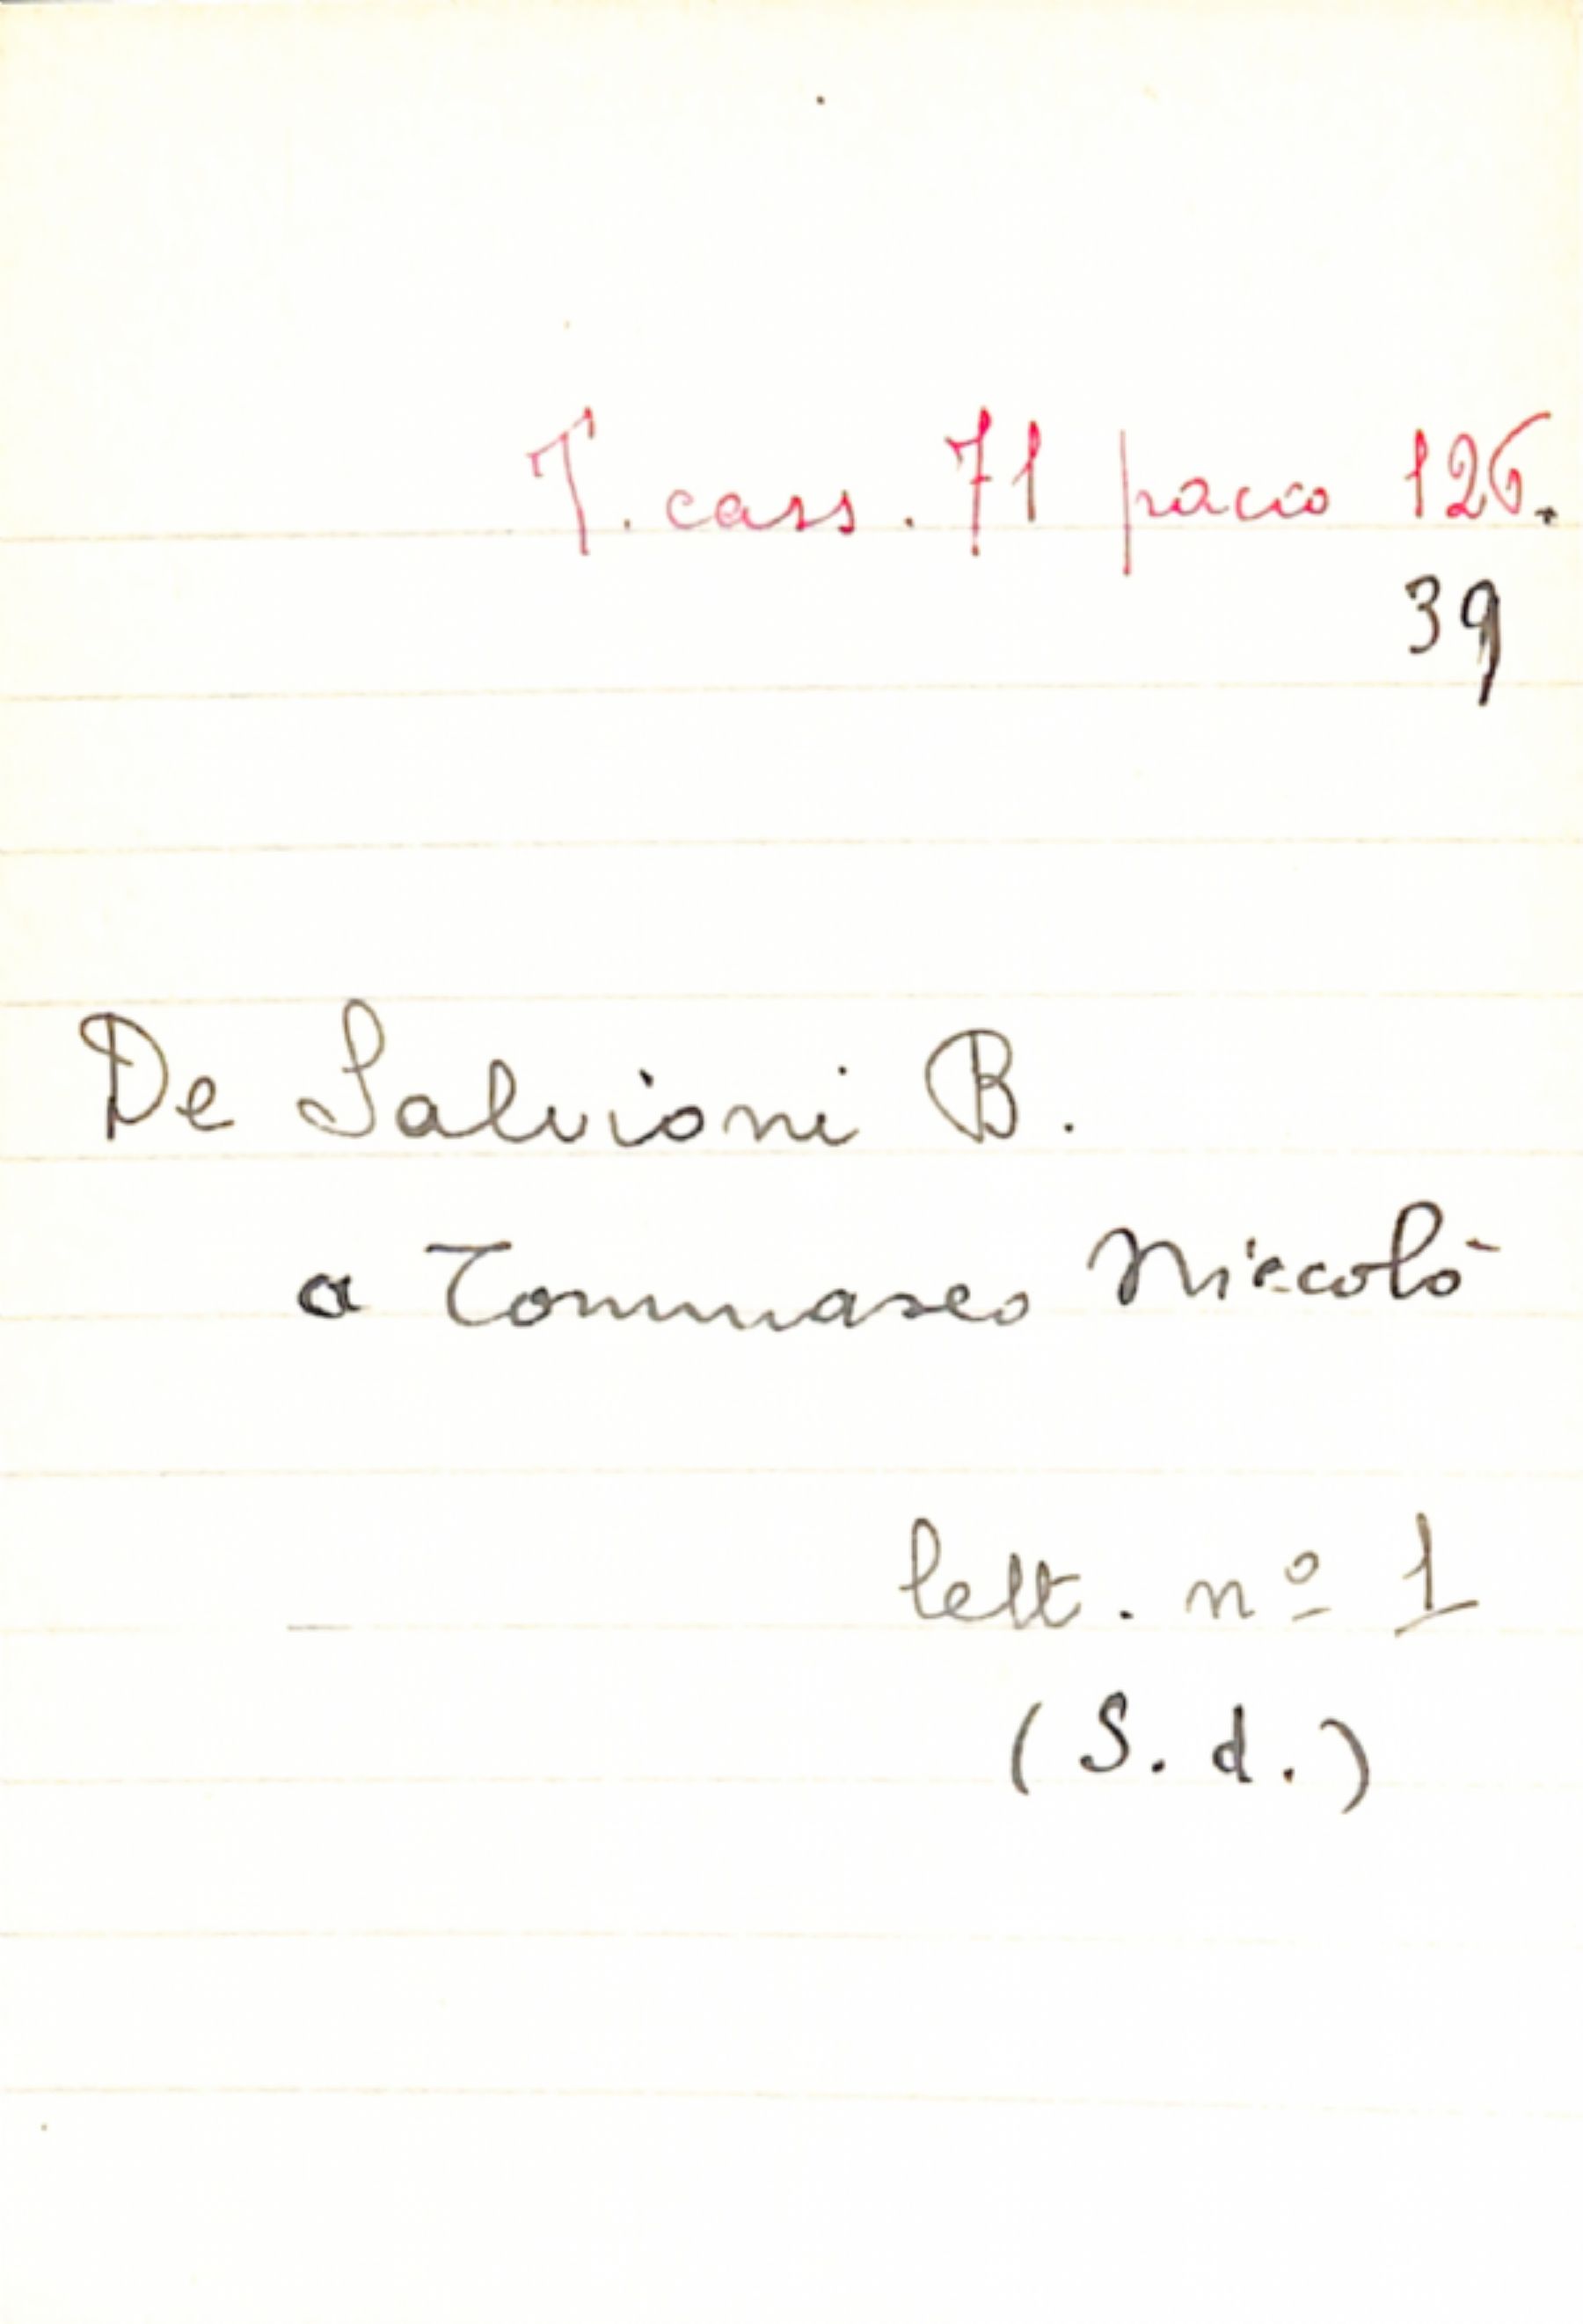 T. cass. 71 pacco 126.
39
De Salvioni B.
a Tommaseo Niccolò
lett. nº 1
(S. d.)